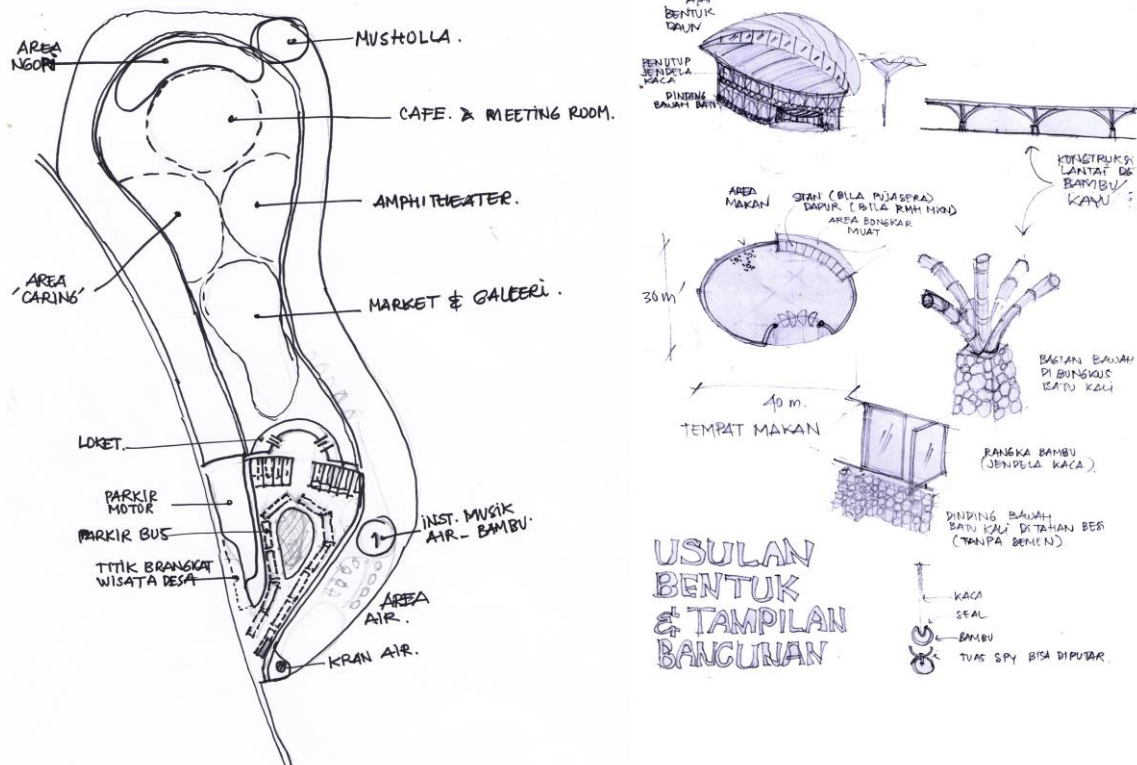 AREA
NGOPI
MUSHOLLA.
CAFE. & MEETING ROOM.
AMPHITHEATER.
'AREA
CARING'
MARKET & GALERI.
LOKET.
PARKIR
MOTOR
PARKIR BUS
TITIK BRANGKAT
WISATA DESA
INST. MUSIK
AIR - BAMBU.
AREA
AIR.
KRAN AIR.
BENTUK
DAUN
PENUTUP
JENDELA
KACA
DINDING
BAWAH BATU
KONSTRUKSI
LANTAI DG
BAMBU/
KAYU
AREA
MAKAN
STAN (BILA PUJASERA)
DAPUR (BILA RMH MKN)
AREA BONGKAR
MUAT
30 m'
40 m.
TEMPAT MAKAN
BAGIAN BAWAH
DI BUNGKUS
BATU KALI
RANGKA BAMBU
(JENDELA KACA)
DINDING BAWAH
BATU KALI DITAHAN BESI
(TANPA SEMEN)
USULAN
BENTUK
& TAMPILAN
BANGUNAN
KACA
SEAL
BAMBU
TUAS SPY BISA DIPUTAR.